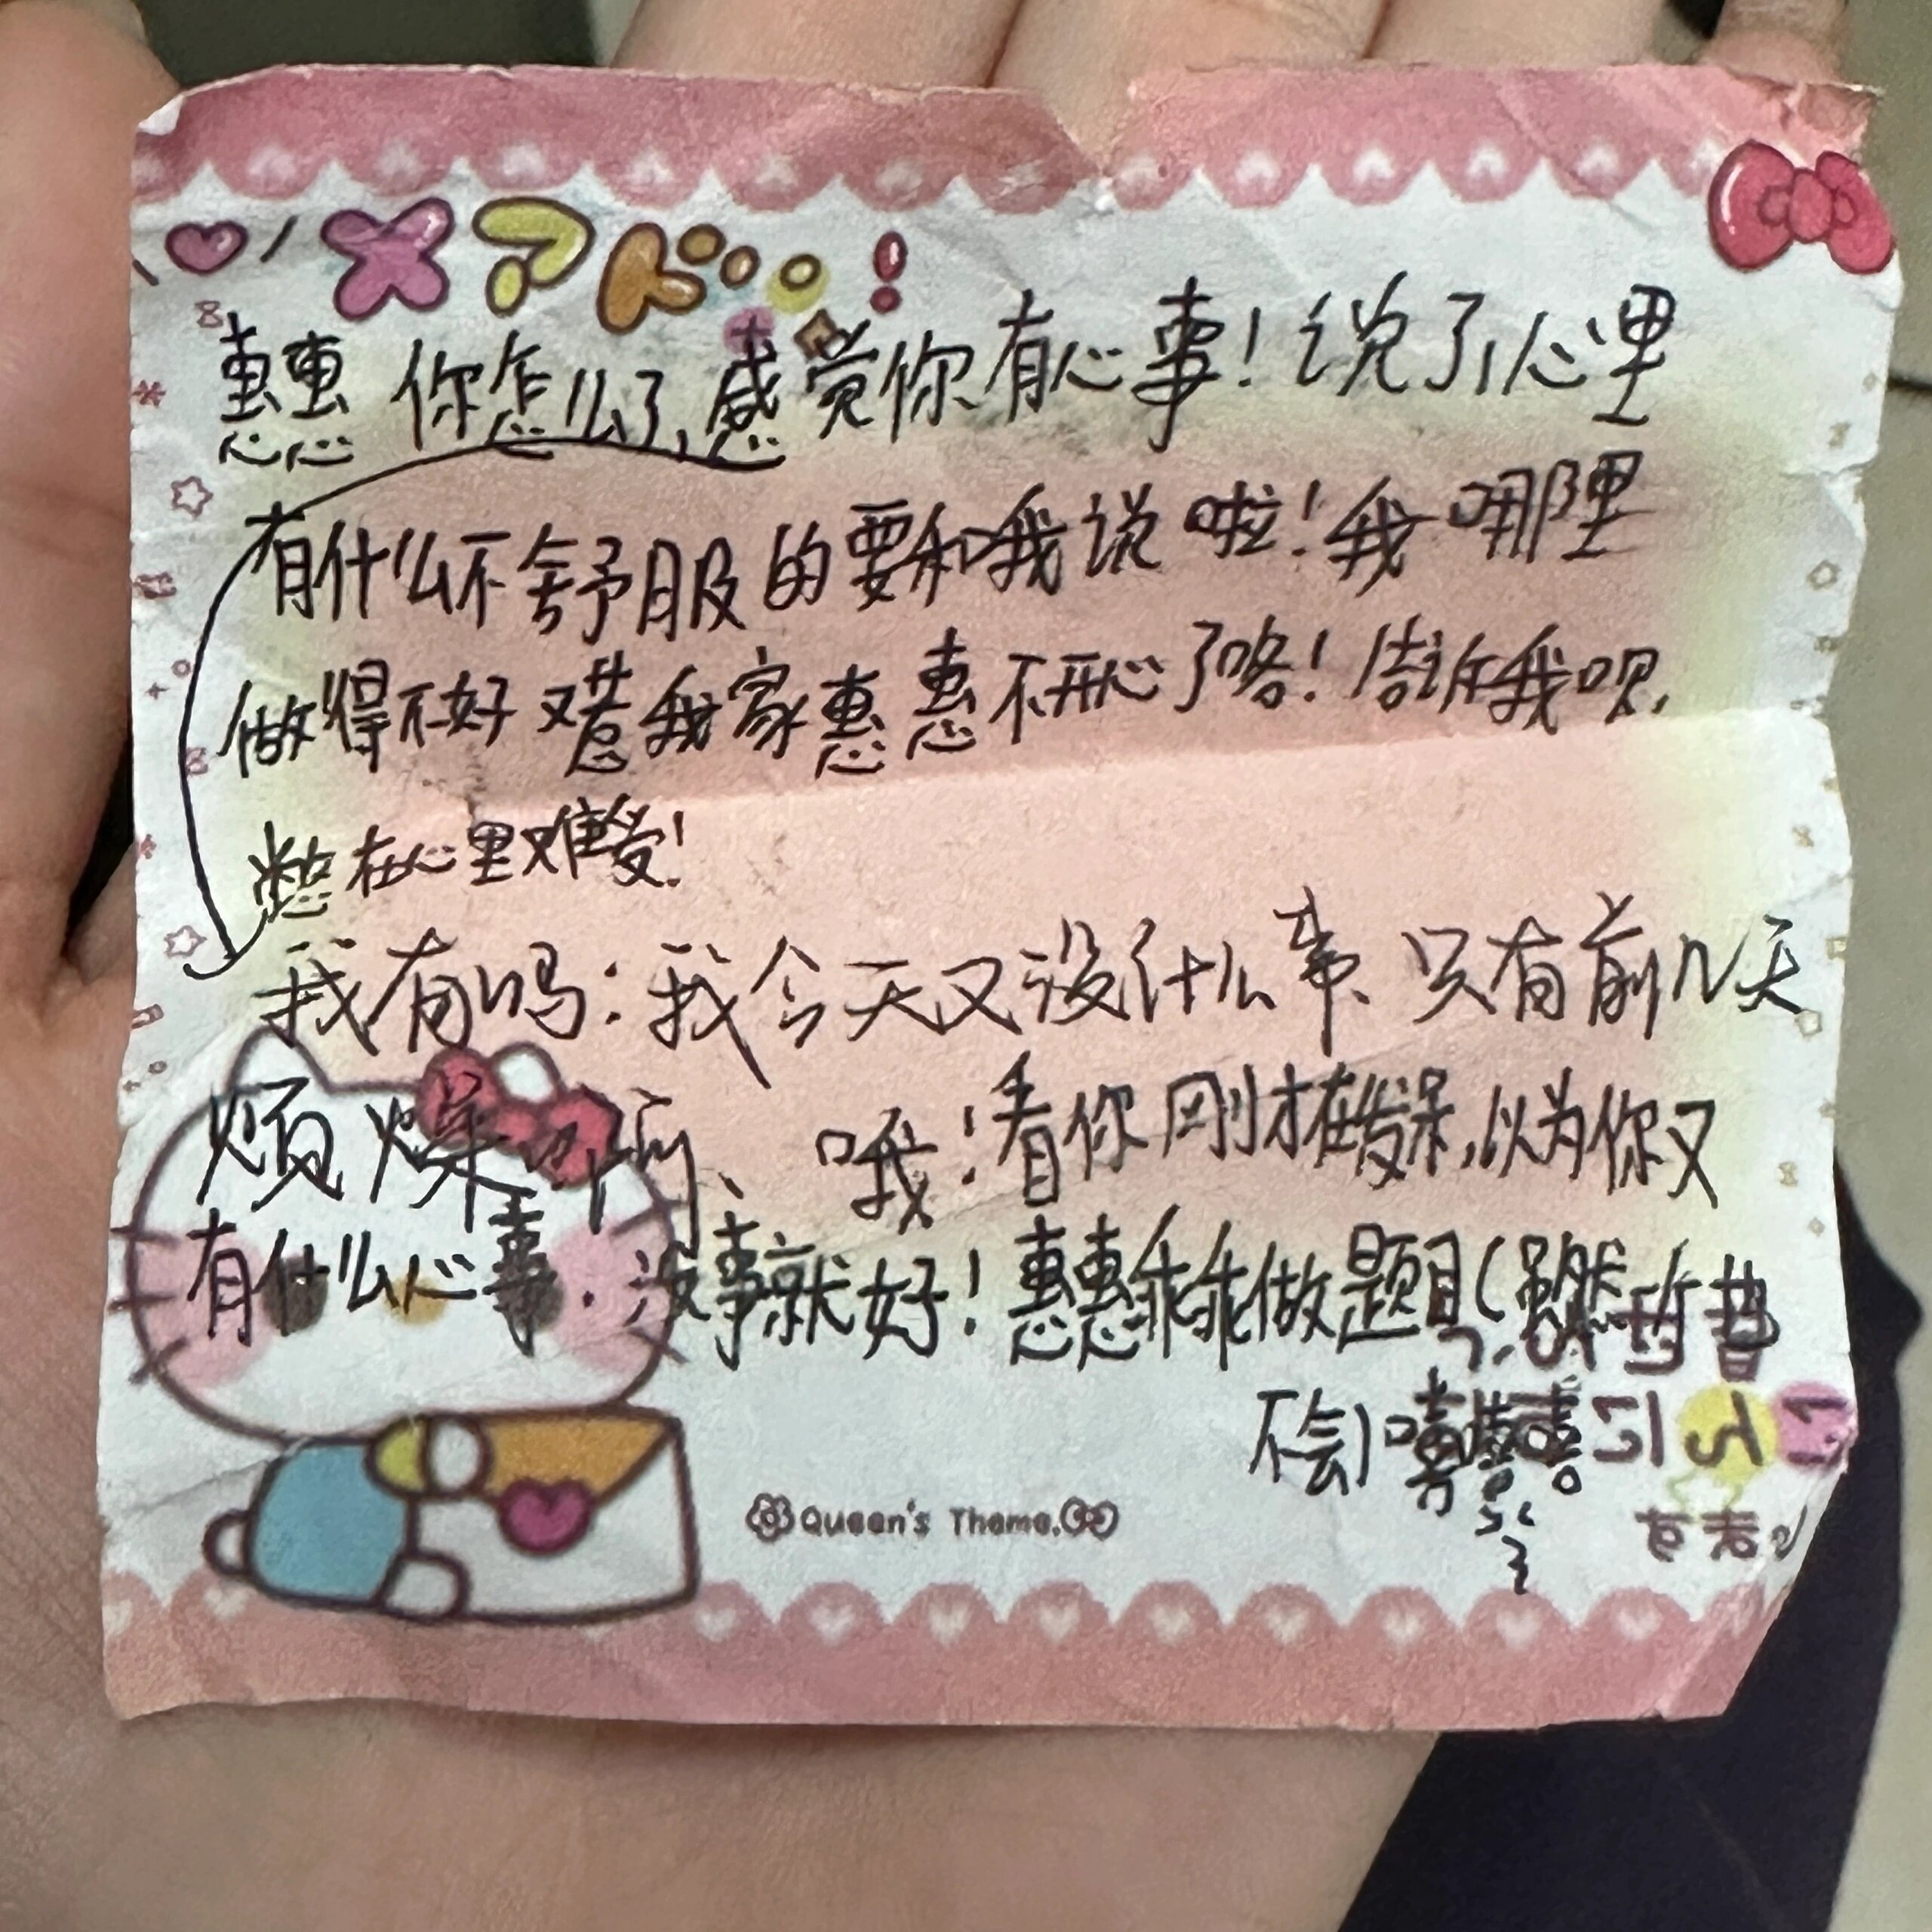 メアド!
惠惠 你怎么了,感觉你有心事!说了,心里
有什么不舒服的要和我说啦!我哪里
做得不好又惹我家惠惠不开心了咯!告诉我呗,
憋在心里难受!
我有吗:我今天又没什么事、只有前几天
烦燥 啊、 哦!看你刚才在发呆,以为你又
有什么心事. 没事就好!惠惠乖乖做题目(虽然
不会)嘻嘻嘻
Queen's Theme.